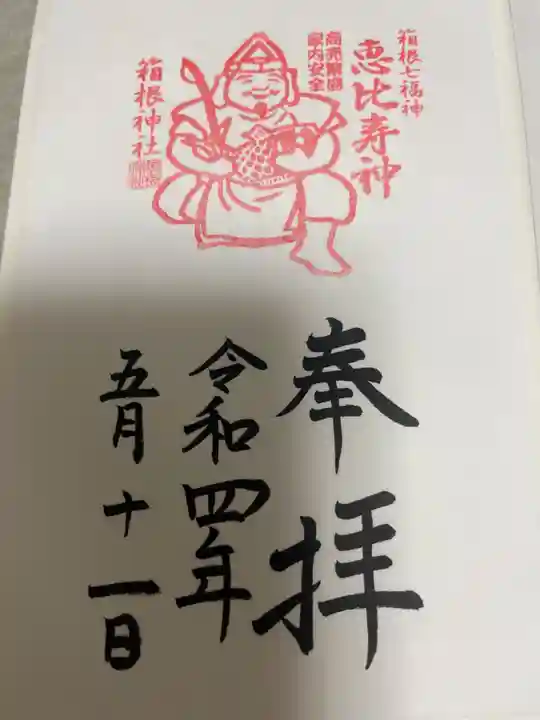 箱根七福神
恵比寿神
商売繁盛
家内安全
箱根神社
奉拝
令和四年
五月十一日